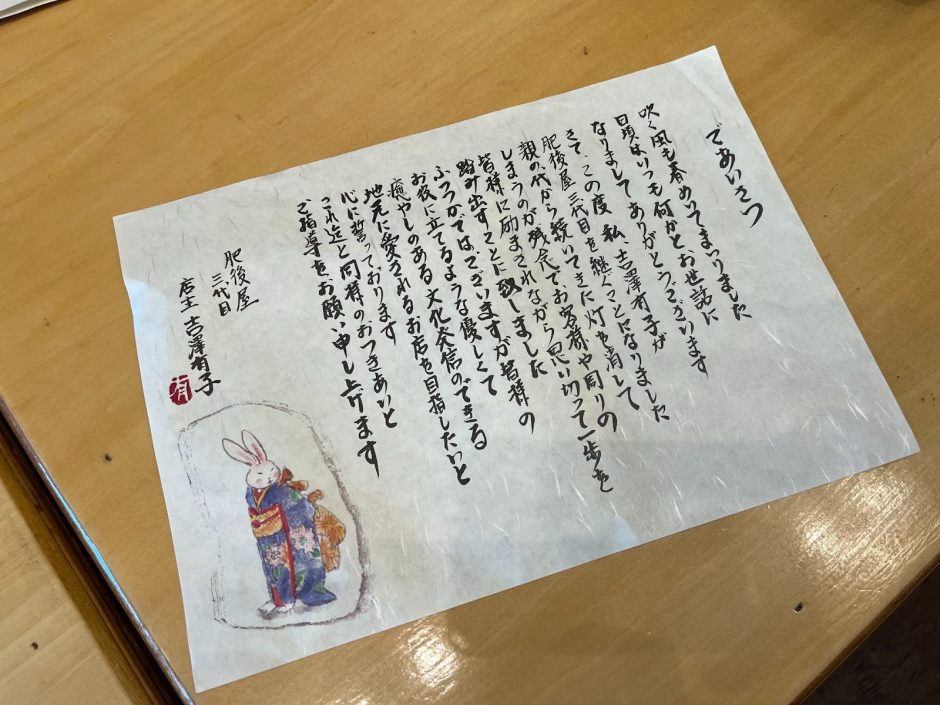 ごあいさつ
吹く風も春めいてまいりました
日頃はいつも何かと、お世話に
なりまして ありがとうございます
さて、この度 私、吉澤有子が
肥後屋三代目を継ぐことになりました
親の代から続いてきた灯を消して
しまうのが残念で、お客様や周りの
皆様に励まされながら思い切って一歩を
踏み出すことに致しました
ふつつかでは、ございますが皆様の
お役に立てるような優しくて
癒やしのある 文化発信のできる
地元に愛されるお店を目指したいと
心に誓っております
これ迄と同様のおつきあいと
ご指導を、お願い申し上げます
肥後屋
三代目
店主 吉澤有子
有